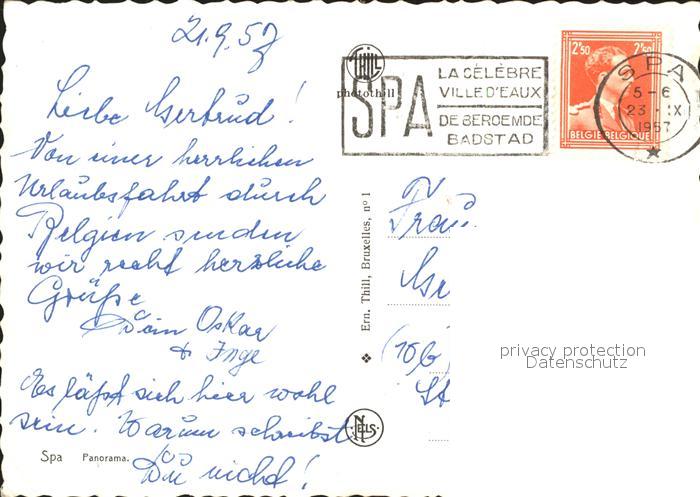 21.9.57
Liebe Gertrud!
Von einer herrlichen
Urlaubsfahrt durch
Belgien senden
wir recht herzliche
Grüße
Dein Oskar
+ Inge
Es läßt sich hier wohl
sein. Warum schreibst
Du nicht!
Spa Panorama.
NELS
Ern. Thill, Bruxelles, nº 1
THILL
photothill
SPA
LA CÉLÈBRE
VILLE D'EAUX
DE BEROEMDE
BADSTAD
2'50 2'50
BELGIE-BELGIQUE
SPA
5-6
23 IX
1957
Frau
Ge
(10b)
St
privacy protection
Datenschutz